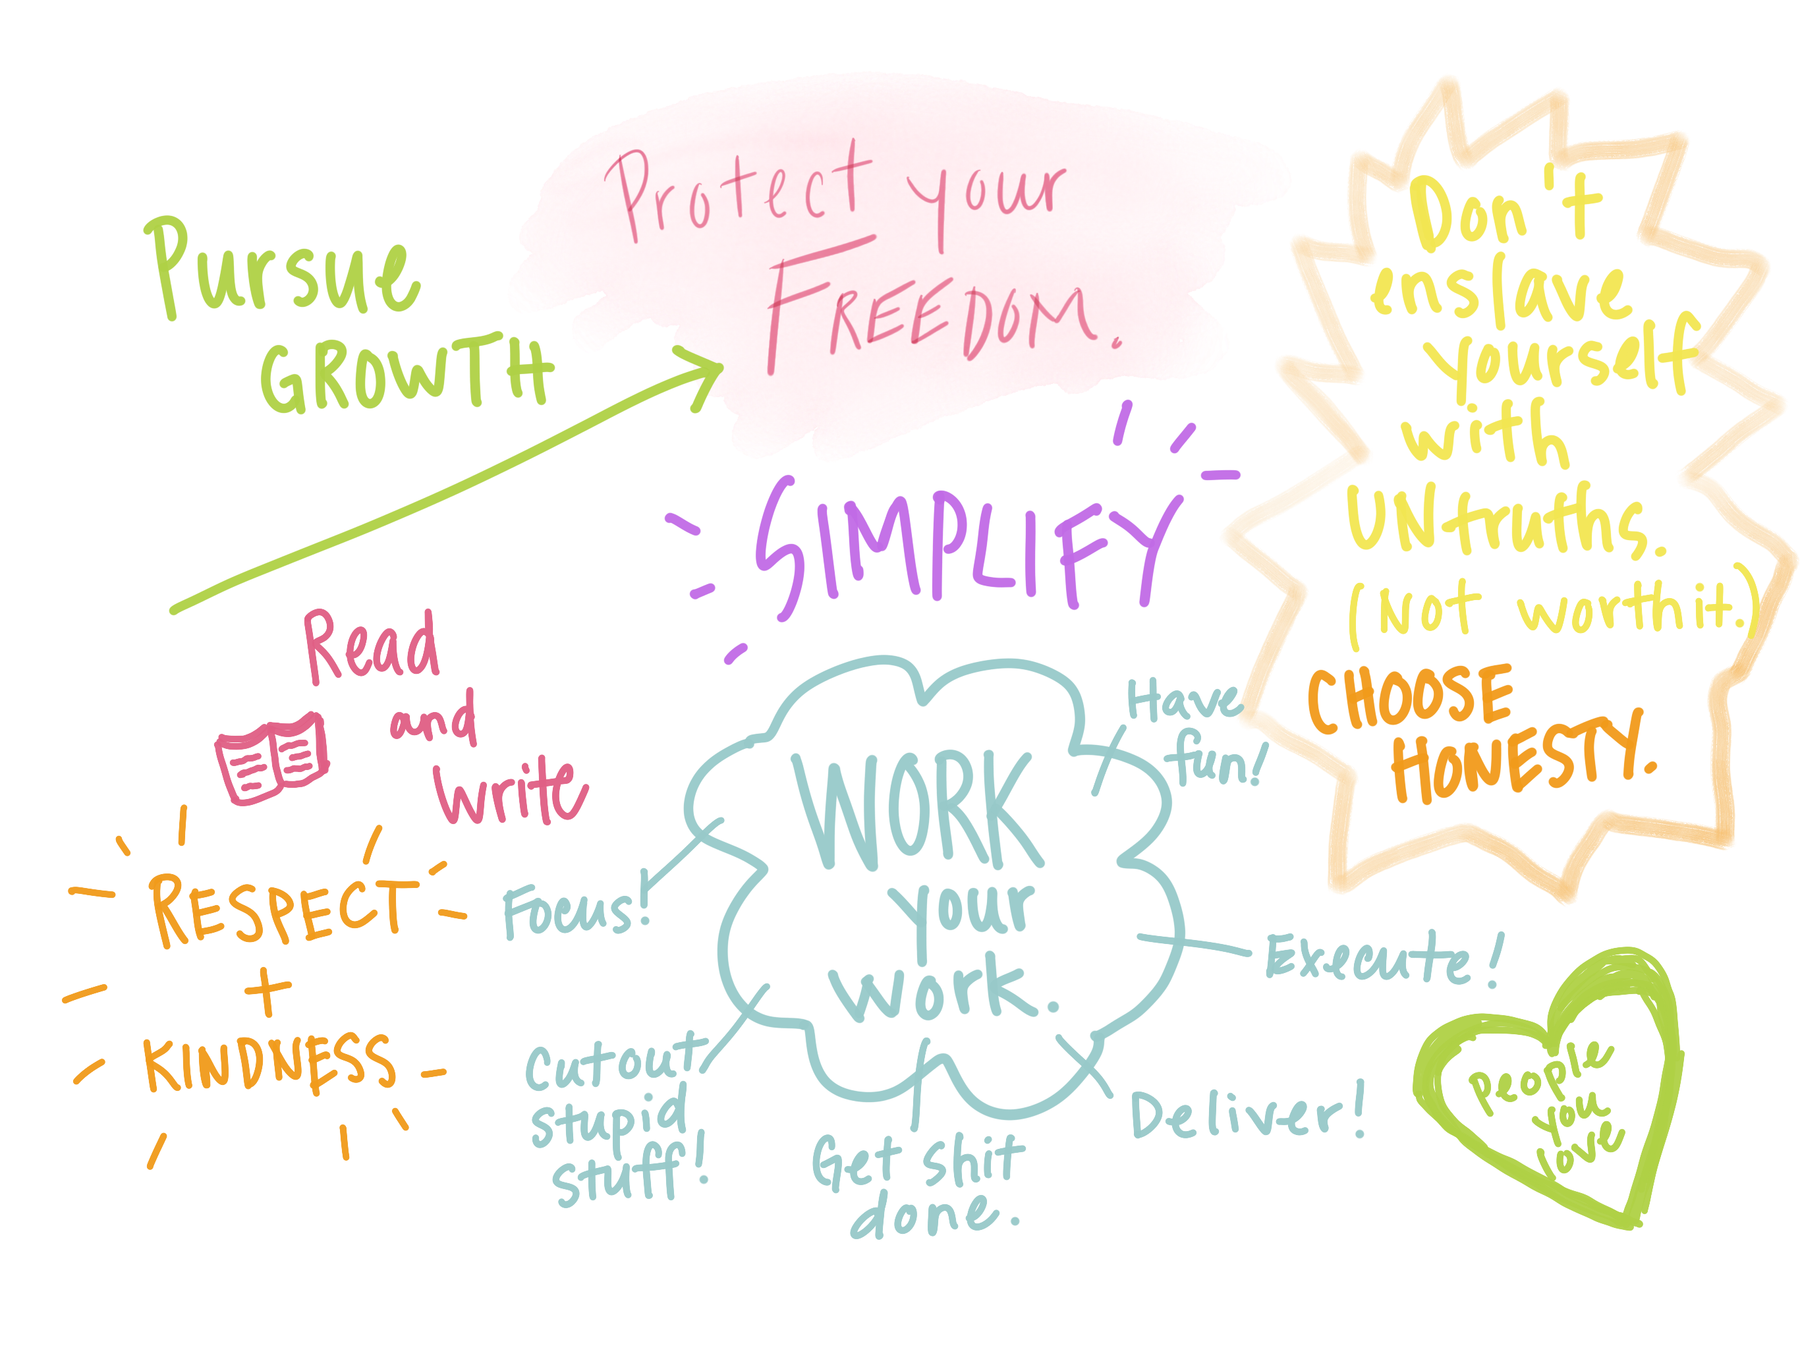 Protect your
FREEDOM.
Pursue
GROWTH
Don't
enslave
yourself
with
UNtruths.
(Not worth it.)
CHOOSE
HONESTY.
SIMPLIFY
Read
and
Write
WORK
your
work.
Have
fun!
Focus!
Execute!
Cut out
stupid
stuff!
Get shit
done.
Deliver!
RESPECT
+
KINDNESS
People
you
love